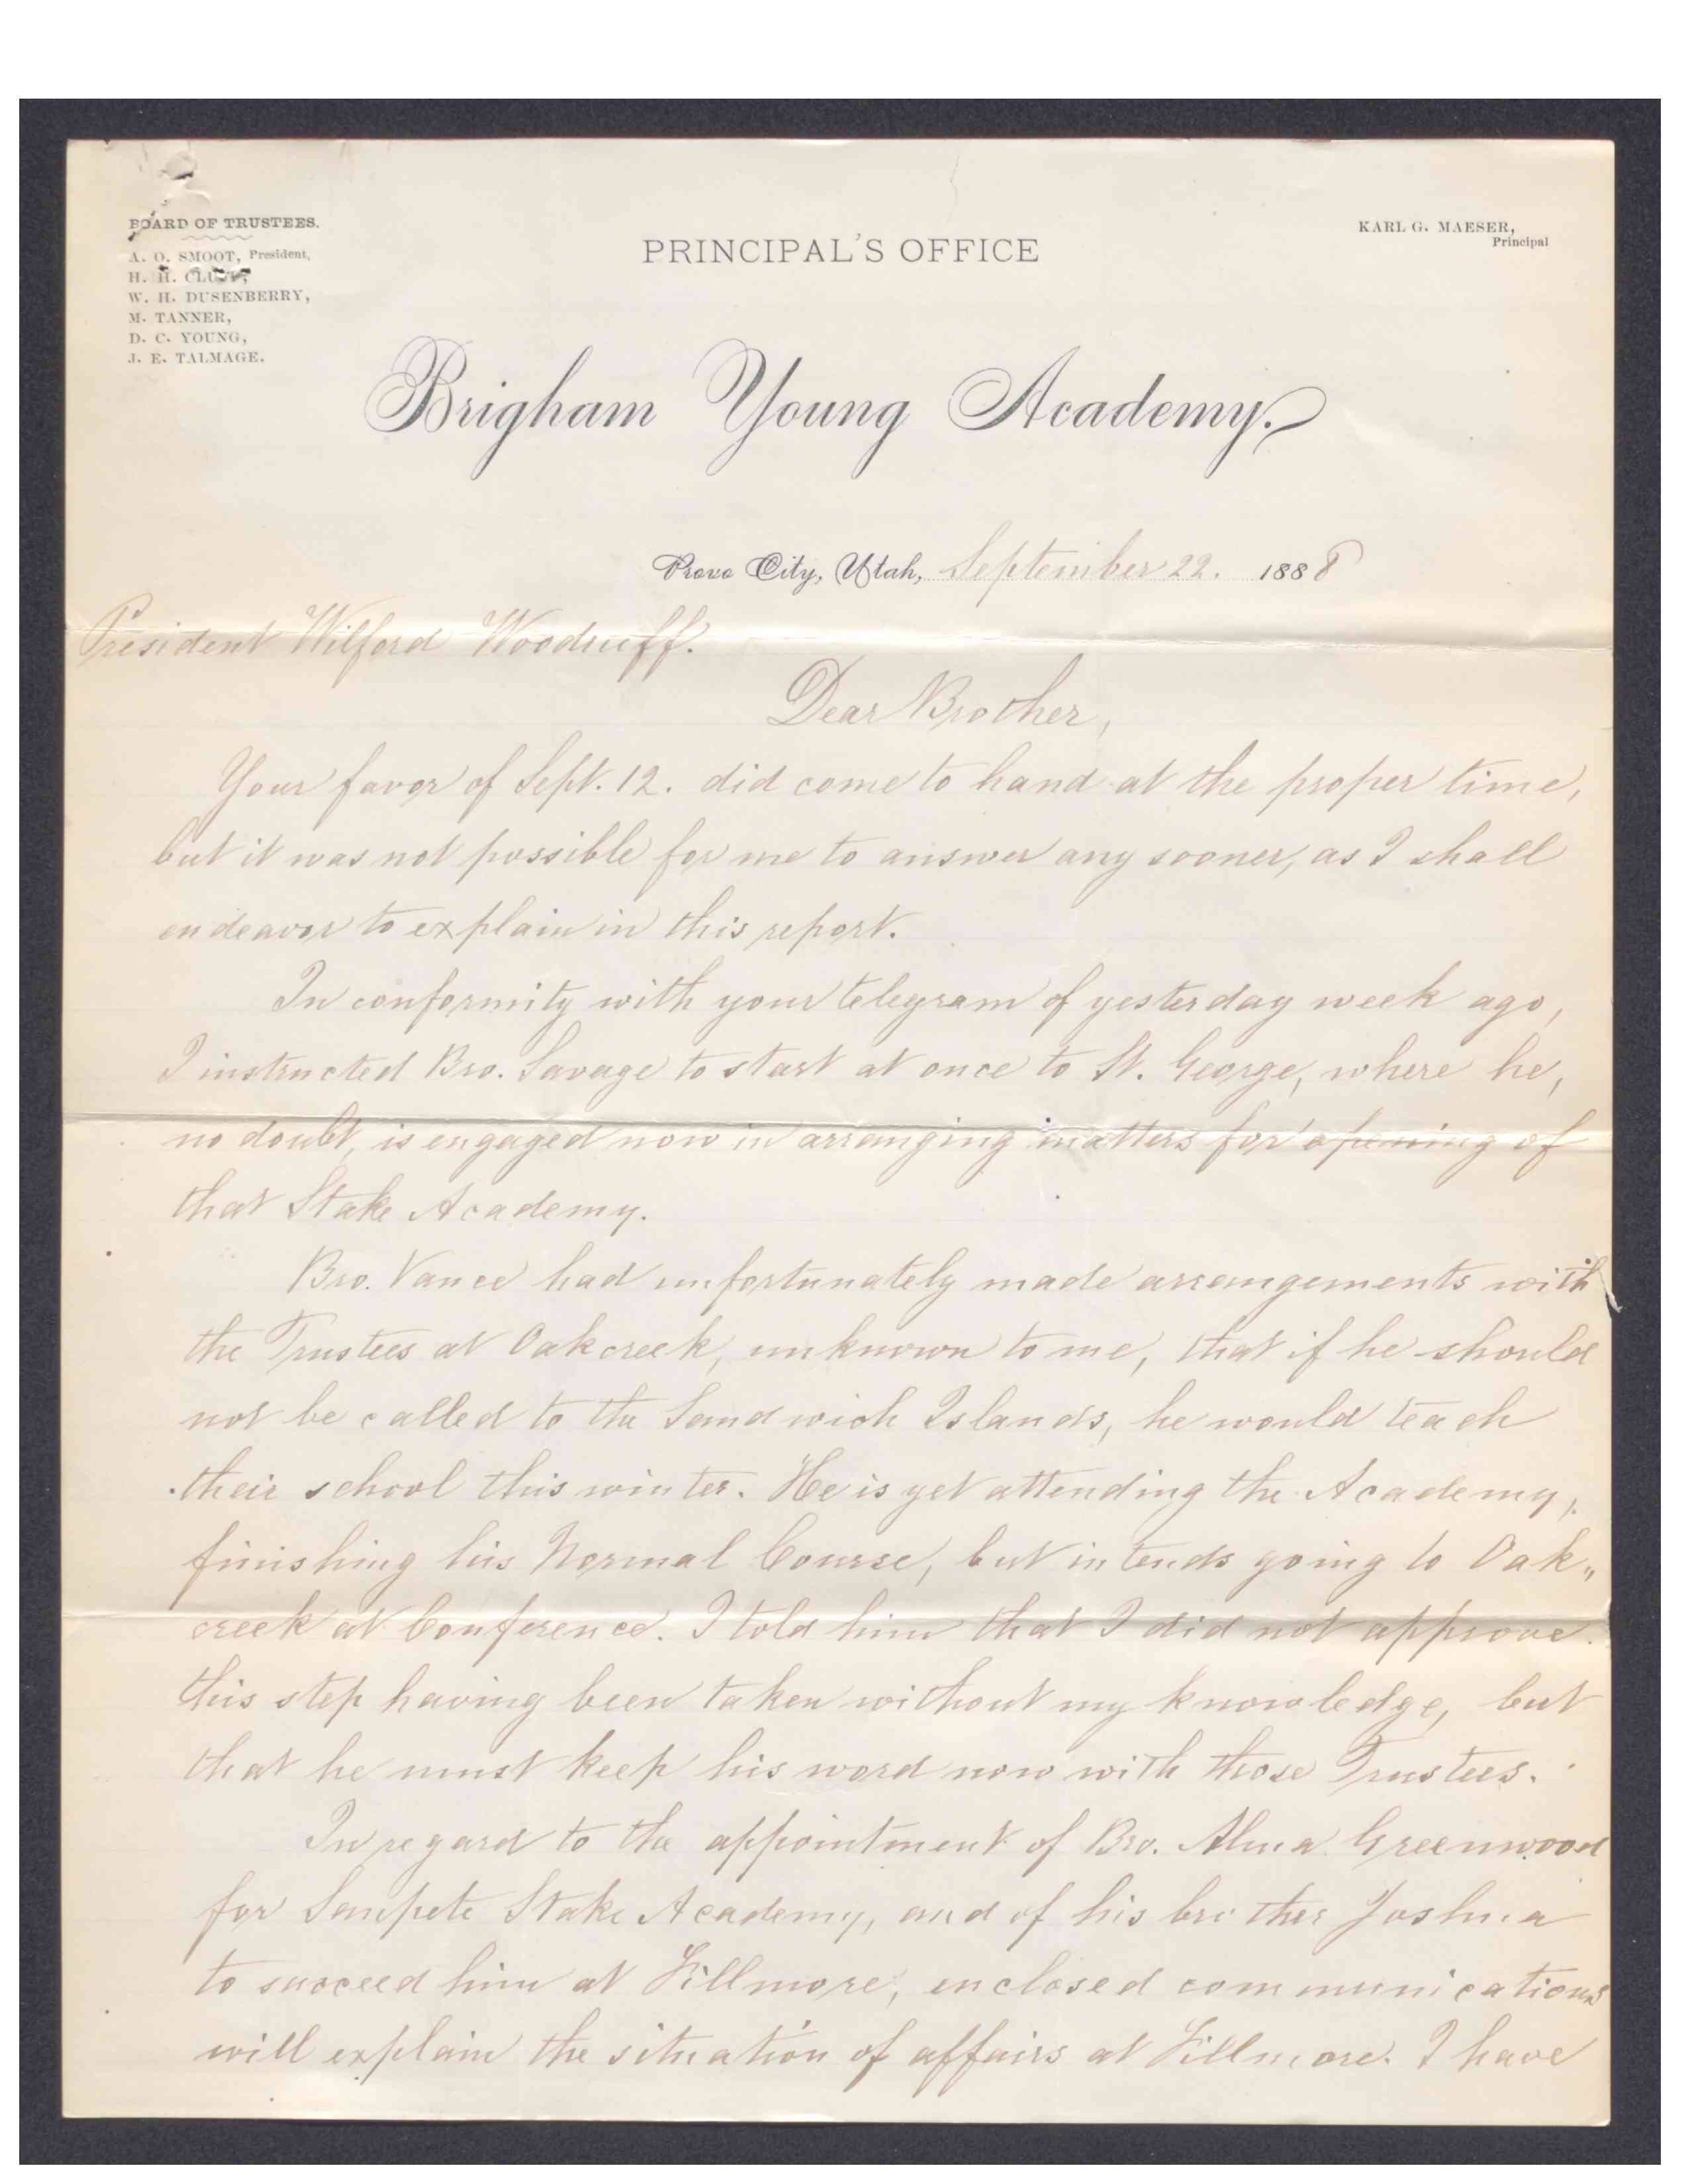 BOARD OF TRUSTEES.
A. O. SMOOT, President,
H. H. CLUFF,
W. H. DUSENBERRY,
M. TANNER,
D. C. YOUNG,
J. E. TALMAGE.
PRINCIPAL'S OFFICE
KARL G. MAESER,
Principal
Brigham Young Academy.
Provo City, Utah, September 22. 1888
President Wilford Woodruff.
Dear Brother,
Your favor of Sept. 12. did come to hand at the proper time,
but it was not possible for me to answer any sooner, as I shall
endeavor to explain in this report.
In conformity with your telegram of yesterday week ago,
I instructed Bro. Savage to start at once to St. George, where he,
no doubt, is engaged now in arranging matters for opening of
that Stake Academy.
Bro. Vance had unfortunately made arrangements with
the Trustees at Oakcreek, unknown to me, that if he should
not be called to the Sandwich Islands, he would teach
their school this winter. He is yet attending the Academy,
finishing his Normal Course, but intends going to Oak„
creek at Conference. I told him that I did not approve
this step having been taken without my knowledge, but
that he must keep his word now with those Trustees.
In regard to the appointment of Bro. Alma Greenwood
for Sanpete Stake Academy, and of his brother Joshua
to succeed him at Fillmore, enclosed communications
will explain the situation of affairs at Fillmore. I have